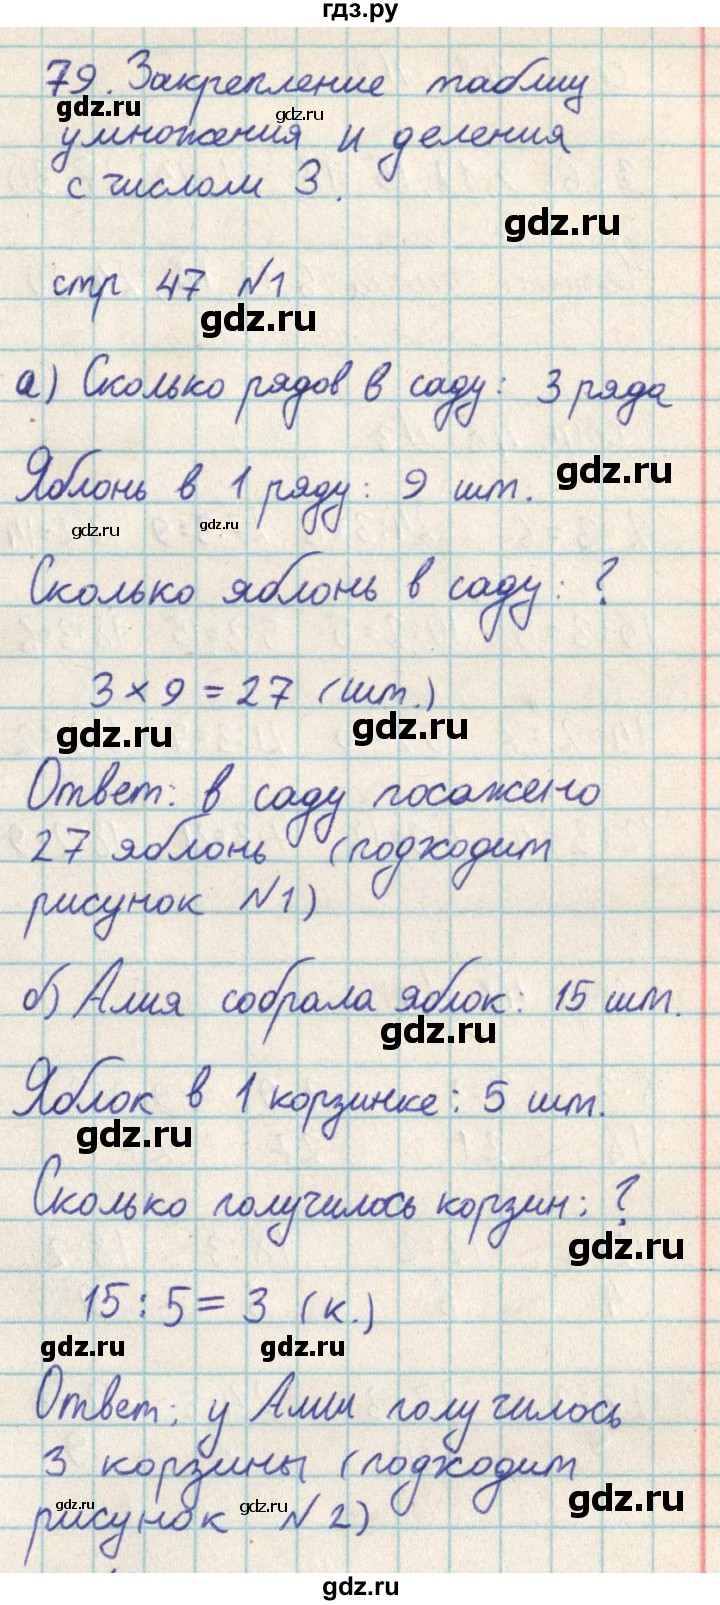 гдз.ру
79. Закрепление таблиц
gdz.ru
gdz.ru
умножения и деления
с числом 3.
gdz.ru
стр 47 №1
gdz.ru
а) Сколько рядов в саду: 3 ряда
Яблонь в 1 ряду: 9 шт.
gdz.ru
gdz.ru
gdz.ru
Сколько яблонь в саду: ?
3 × 9 = 27 (шт.)
gdz.ru
gdz.ru
Ответ: в саду посажено
27 яблонь (подходит
рисунок №1)
б) Алия собрала яблок: 15 шт.
gdz.ru
Яблок в 1 корзинке: 5 шт.
gdz.ru
Сколько получилось корзин: ?
gdz.ru
15 : 5 = 3 (к.)
gdz.ru
gdz.ru
Ответ: у Алии получилось
3 корзины (подходит
gdz.ru
gdz.ru
gdz.ru
рисунок №2)
gdz.ru